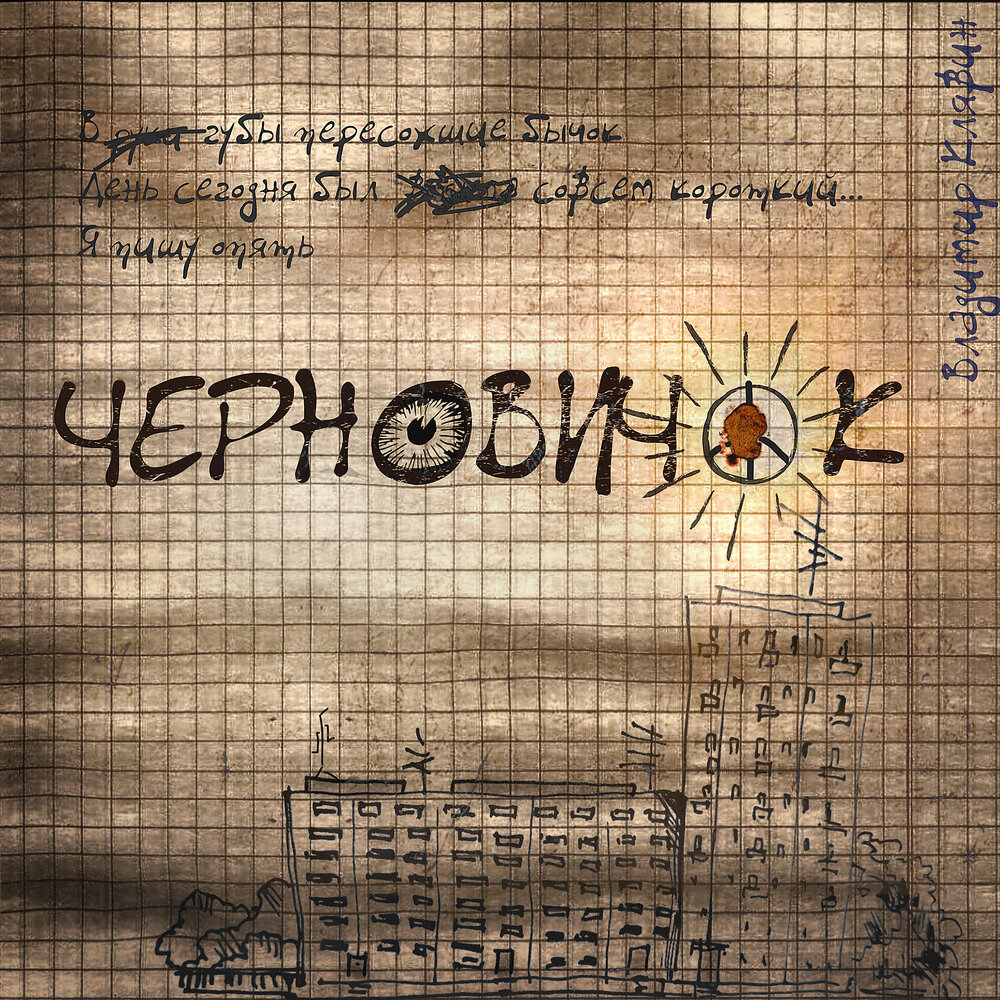 В губы пересохшие бычок
День сегодня был совсем короткий...
Я пишу опять
ЧЕРНОВИЧОК
Владимир Клявин